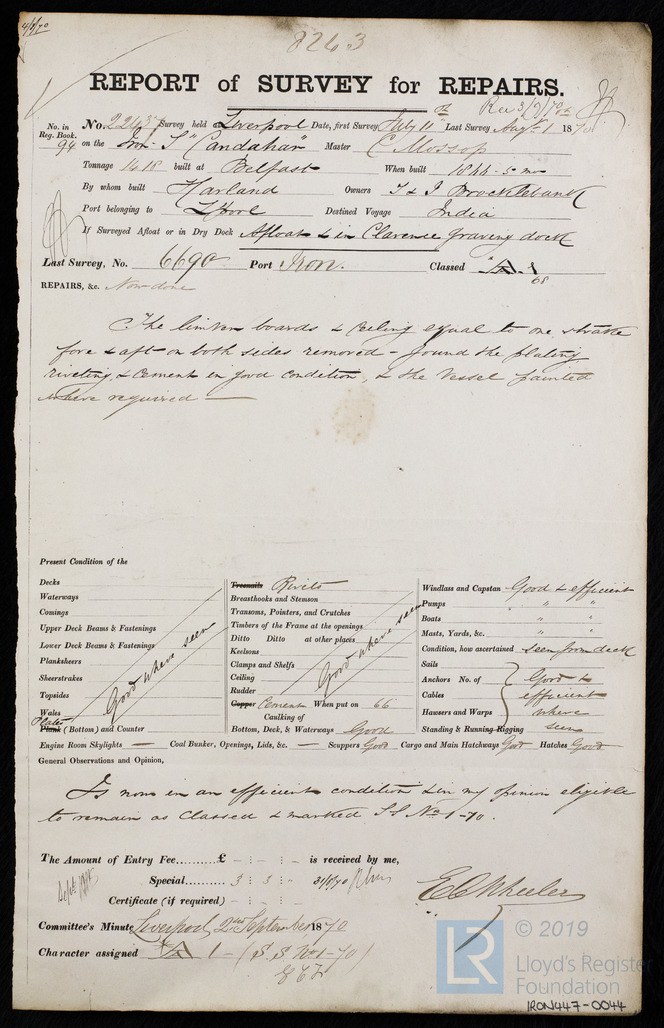 8263
REPORT of SURVEY for REPAIRS.
No. in Reg. Book. 94
No. 22437 Survey held Liverpool Date, first Survey July 11th Last Survey Augt 1 1870
on the Iron S "Candahar" Master C Mossop
Tonnage 1418 built at Belfast When built 1866-5 mo
By whom built Harland Owners T & J Brocklebank
Port belonging to L'Pool Destined Voyage India
If Surveyed Afloat or in Dry Dock Afloat & in Clarence Graving dock
Last Survey, No. 6690 Port Iron. Classed A 1
68
REPAIRS, &c. Now done
The limber boards & Ceiling equal to one strake
fore & aft on both sides removed - found the plating
riveting & Cement in good condition, & the Vessel painted
where required
Present Condition of the
Decks
Waterways
Comings
Upper Deck Beams & Fastenings
Lower Deck Beams & Fastenings
Planksheers
Sheerstrakes
Topsides
Wales
Good where seen
Plates
Plank (Bottom) and Counter
Treenails Rivets
Breasthooks and Stemson
Transoms, Pointers, and Crutches
Timbers of the Frame at the openings
Ditto Ditto at other places
Keelsons
Clamps and Shelfs
Ceiling
Rudder
Good where seen
Copper Cement When put on 66
Caulking of
Bottom, Deck, & Waterways Good
Windlass and Capstan Good & efficient
Pumps " " "
Boats " "
Masts, Yards, &c. " " "
Condition, how ascertained Seen from deck
Sails
Anchors No. of Good &
Cables efficient
Hawsers and Warps where
Standing & Running Rigging seen
Engine Room Skylights — Coal Bunker, Openings, Lids, &c. — Scuppers Good Cargo and Main Hatchways Good Hatches Good
General Observations and Opinion,
Is now in an efficient condition & in my opinion eligible
to remain as Classed & marked S S No 1-70.
The Amount of Entry Fee..........£ - : - : - is received by me,
Special.......... 3 : 3 : -
Certificate (if required) - : - : -
E C Wheeler
Committee's Minute Liverpool 2nd September 1870
Character assigned A 1 - (S.S. No 1-70)
© 2019
LR
Lloyd's Register
Foundation
IRON447-0044